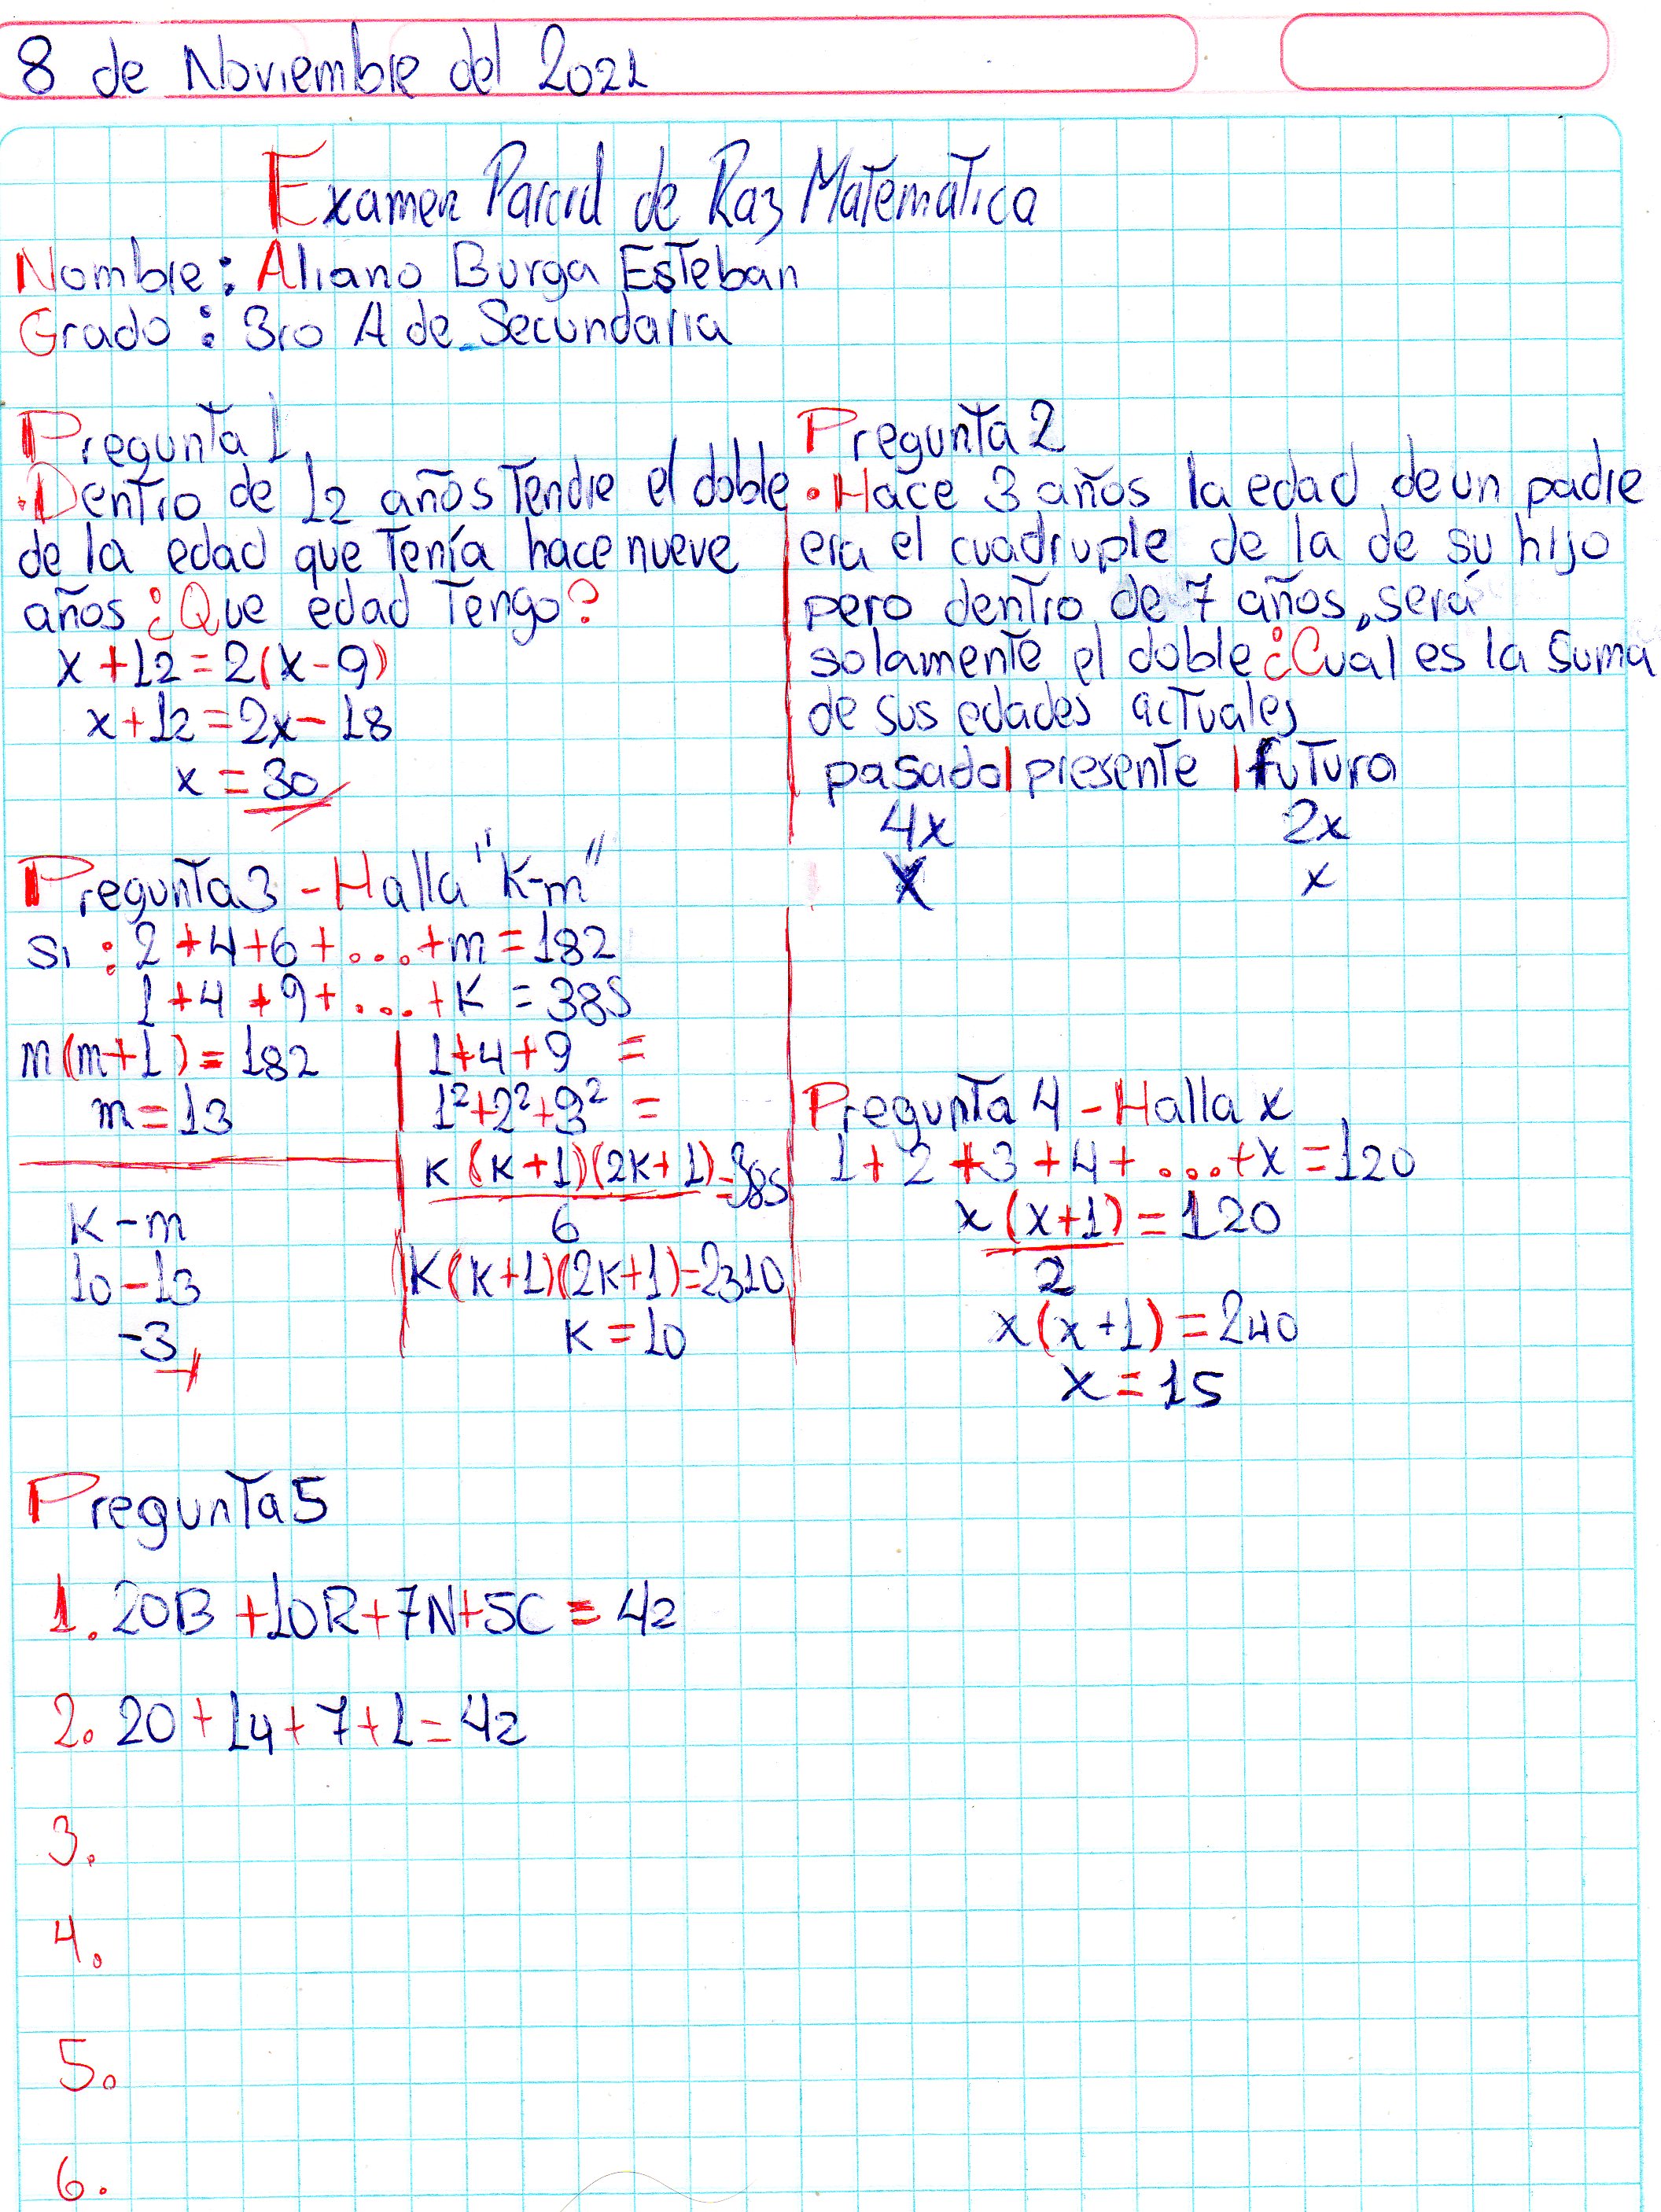 8 de Noviembre del 2021
Examen Parcial de Raz Matemática
Nombre: Aliano Burga Esteban
Grado: 3ro A de Secundaria
Pregunta 1
•Dentro de 12 años Tendre el doble
de la edad que Tenía hace nueve
años ¿Que edad Tengo?
x+12=2(x-9)
x+12=2x-18
x=30
Pregunta 2
•Hace 3 años la edad de un padre
era el cuadruple de la de su hijo
pero dentro de 7 años, será
solamente el doble ¿Cuál es la suma
de sus edades actuales
pasado|presente |futuro
4x 2x
x x
Pregunta3 -Halla "K-m"
Si: 2+4+6+...+m=182
1+4+9+...+K=385
m(m+1)=182
m=13
K-m
10-13
-3
1+4+9 =
1²+2²+3² =
K(K+1)(2K+1)=385
6
K(K+1)(2K+1)=2310
K=10
Pregunta 4 -Halla x
1+2+3+4+...+x=120
x(x+1)=120
2
x(x+1)=240
x=15
Pregunta5
1. 20B+10R+7N+5C=42
2. 20+14+7+1=42
3.
4.
5.
6.